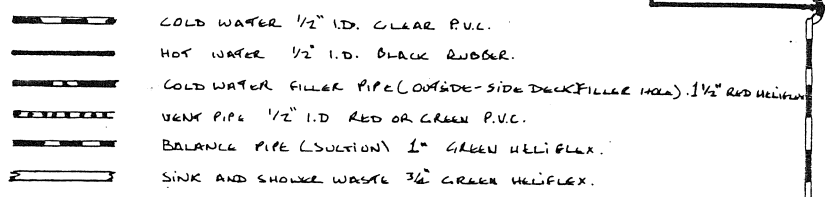 COLD WATER 1/2" I.D. CLEAR P.V.C.
HOT WATER 1/2" I.D. BLACK RUBBER.
COLD WATER FILLER PIPE (OUTSIDE-SIDE DECK FILLER HOLE). 1 1/2" RED HELIFLEX
VENT PIPE 1/2" I.D RED OR GREEN P.V.C.
BALANCE PIPE (SUCTION) 1" GREEN HELIFLEX.
SINK AND SHOWER WASTE 3/4" GREEN HELIFLEX.